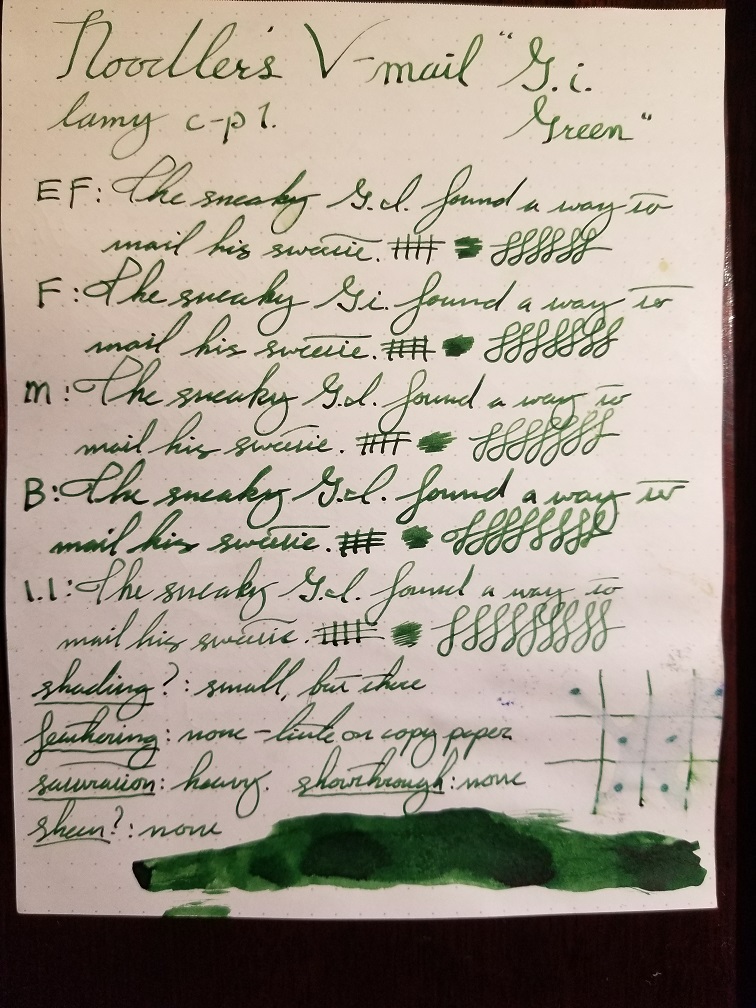 Noodler's V-mail "G.i.
Green"
lamy c-p 1.
EF: The sneaky G.I. found a way to
mail his sweetie.
F: The sneaky G.i. found a way to
mail his sweetie.
M: The sneaky G.I. found a way to
mail his sweetie.
B: The sneaky G.I. found a way to
mail his sweetie.
1.1: The sneaky G.I. found a way to
mail his sweetie.
shading?: small, but there
feathering: none - little on copy paper
saturation: heavy. showthrough: none
sheen?: none